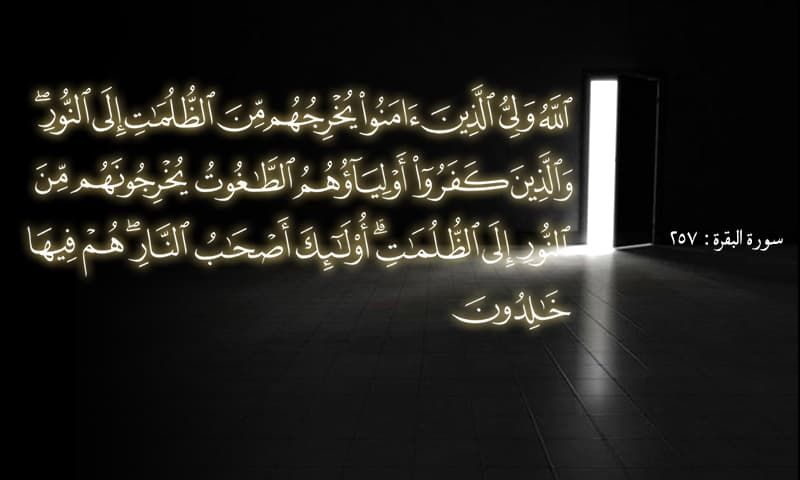 ٱللَّهُ وَلِىُّ ٱلَّذِينَ ءَامَنُوا۟ يُخْرِجُهُم مِّنَ ٱلظُّلُمَـٰتِ إِلَى ٱلنُّورِ ۖ
وَٱلَّذِينَ كَفَرُوٓا۟ أَوْلِيَآؤُهُمُ ٱلطَّـٰغُوتُ يُخْرِجُونَهُم مِّنَ
ٱلنُّورِ إِلَى ٱلظُّلُمَـٰتِ ۗ أُو۟لَـٰٓئِكَ أَصْحَـٰبُ ٱلنَّارِ ۖ هُمْ فِيهَا
خَـٰلِدُونَ
سورة البقرة : ٢٥٧